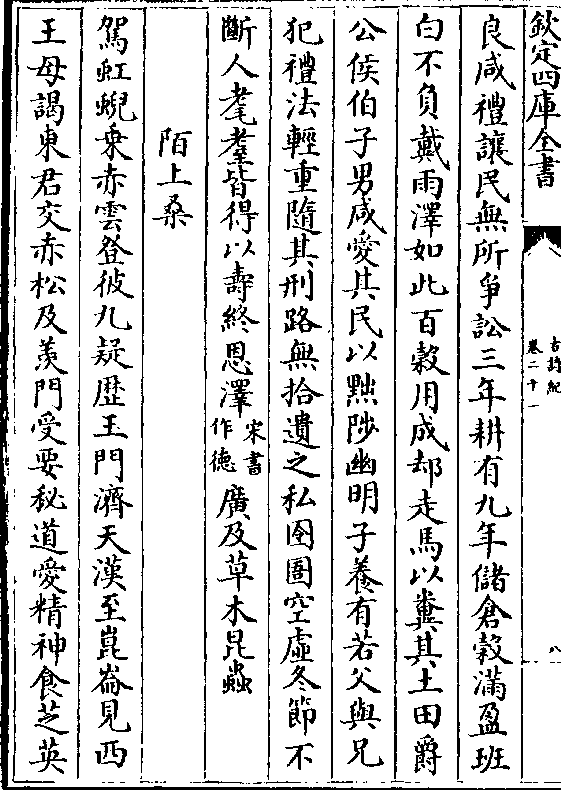 欽定四庫全書
古詩紀
卷二十一
八
良咸禮讓民無所爭訟三年耕有九年儲倉穀滿盈班
白不負戴雨澤如此百穀用成却走馬以糞其土田爵
公侯伯子男咸愛其民以黜陟幽明子養有若父與兄
犯禮法輕重隨其刑路無拾遺之私囹圄空虛冬節不
斷人耄耋皆得以壽終恩澤宋書作德廣及草木昆蟲
陌上桑
駕虹蜺乗赤雲登彼九疑歴玉門濟天漢至崑崙見西
王母謁東君交赤松及羨門受要秘道愛精神食芝英